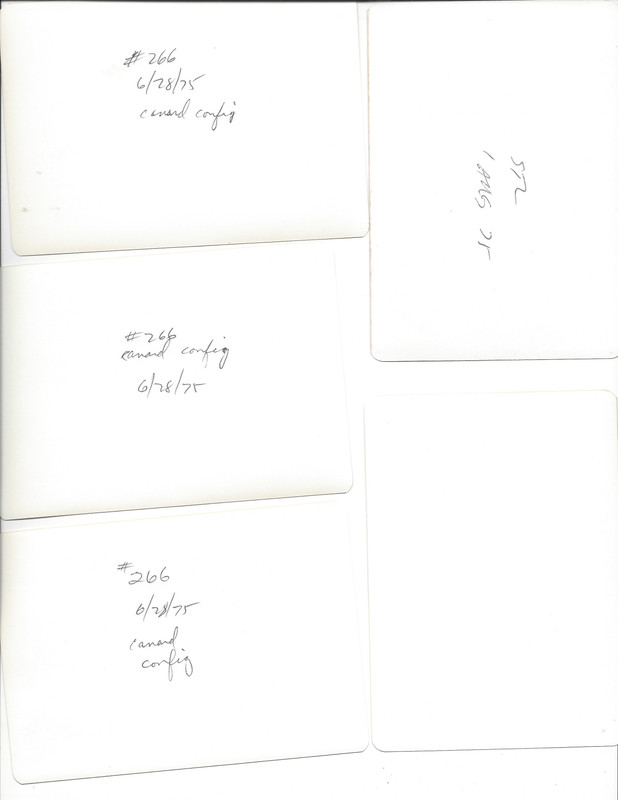 #266
6/28/75
canard config
#266
canard config
6/28/75
#266
6/28/75
canard
config
STL
1 AUG 75